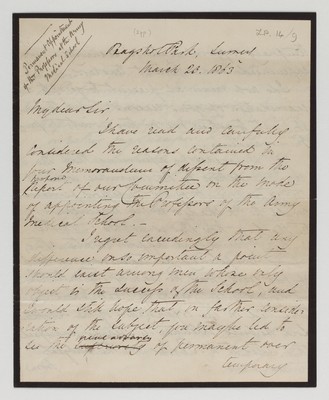 Permanent Appointment
of the Professors at the Army
Medical School
Bagshot Park, Surrey
March 20. 1863
My dear Sir,
I have read and carefully
considered the reasons contained in
your Memorandum of dissent from the
proposed
report of our Committee on the mode
of appointing the Professors of the Army
Medical School. —
I regret exceedingly that any
difference on so important a point
should exist among men whose only
object is the success of the School, and
I would still hope that, on further consider-
ation of the subject, you may be led to
see the
of permanent over
temporary